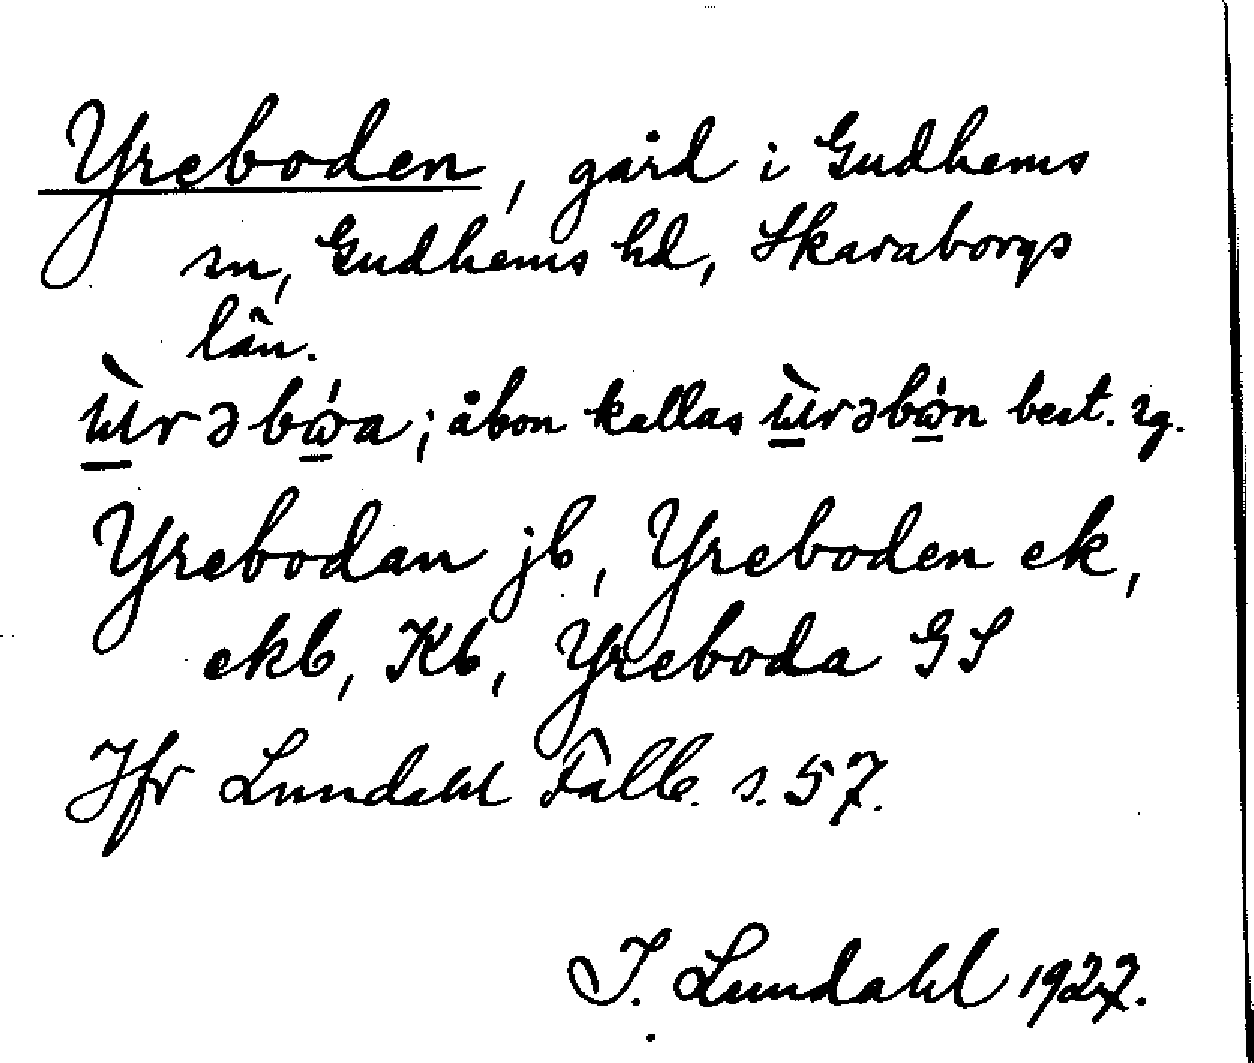 Yreboden, gård i Gudhems
sn, Gudhems hd, Skaraborgs
län.
ɯ̀rəbώa; åbon kallas ɯ̀rəbώn best. sg.
Yrebodan jb, Yreboden ek,
ekb, Kb, Yreboda GS
Jfr Lundahl Falb. s. 57.
I. Lundahl 1927.